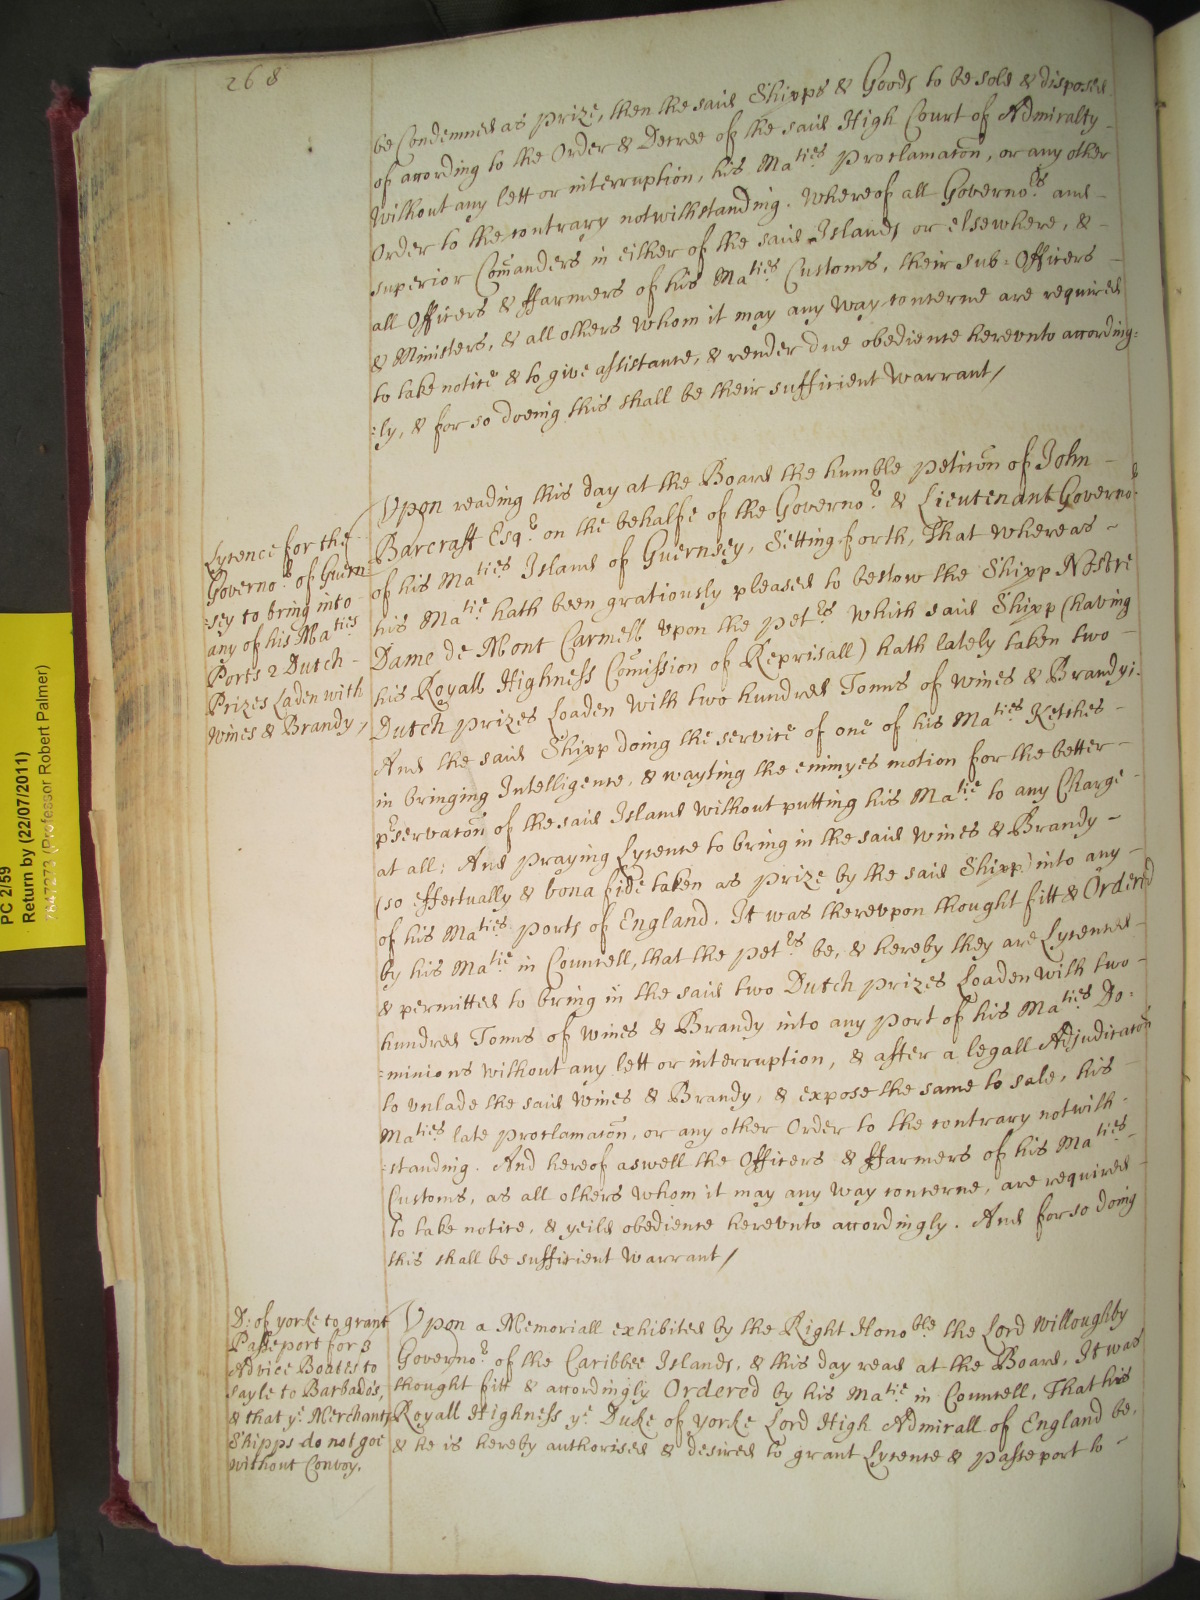 268
be Condemned as prize, then the said Shipps & Goods to be sold & disposed
of according to the Order & Decree of the said High Court of Admiralty
without any lett or interruption, his Maties Proclamacon, or any other
Order to the contrary notwithstanding. Whereof all Governors and
superior Comanders in either of the said Islands or elsewhere, &
all Officers & ffarmers of his Maties Customs, their sub-Officers
& Ministers, & all others whom it may any way concerne are required
to take notice & to give assistance, & render due obedience herevnto according:
:ly, & for so doeing this shall be their sufficient Warrant/
Lycence for the
Governor of Guern:
:sey to bring into
any of his Maties
Ports 2 Dutch
Prizes Laden with
wines & Brandy/
Vpon reading this day at the Board the humble peticon of John
Barcraft Esqr on the behalfe of the Governor & Lieutenant Governor
of his Maties Island of Guernsey, Setting forth, That whereas
his Matie hath been gratiously pleased to bestow the Shipp Nostre
Dame de Mont Carmell vpon the Petrs which said Shipp (having
his Royall Highness Comission of Reprisall) hath lately taken two
Dutch prizes Loaden with two hundred Tonns of wines & Brandy:
And the said Shipp doing the service of one of his Maties Ketches
in bringing Intelligence, & wayting the enimyes motion for the better
preservacon of the said Island without putting his Matie to any Charge
at all; And praying Lycence to bring in the said wines & Brandy
(so effectually & bona fide taken as prize by the said Shipp) into any
of his Maties Ports of England. It was therevpon thought fitt & Ordered
by his Matie in Councell, that the Petrs be, & hereby they are Lycenced
& permitted to bring in the said two Dutch prizes Loaden with two
hundred Tonns of wines & Brandy into any Port of his Maties Do:
:minions without any lett or interruption, & after a legall Adjudicacon
to vnlade the said wines & Brandy, & expose the same to sale, his
Maties late Proclamacon, or any other Order to the contrary notwith:
:standing. And hereof aswell the Officers & ffarmers of his Maties
Customs, as all others whom it may any way concerne, are required
to take notice, & yeild obedience herevnto accordingly. And for so doing
this shall be sufficient Warrant/
D: of yorke to grant
Passeport for 3
Advice Boates to
sayle to Barbados,
& that ye Merchant
Shipps do not goe
without Convoy.
Vpon a Memoriall exhibited by the Right Honoble the Lord Willoughby
Governor of the Caribbee Islands, & this day read at the Board, It was
thought fitt & accordingly Ordered by his Matie in Councell, That his
Royall Highness ye Duke of yorke Lord High Admirall of England be,
& he is hereby authorised & desired to grant Lycence & passeport to
PC 2/59
Return by (22/07/2011)
(Professor Robert Palmer)